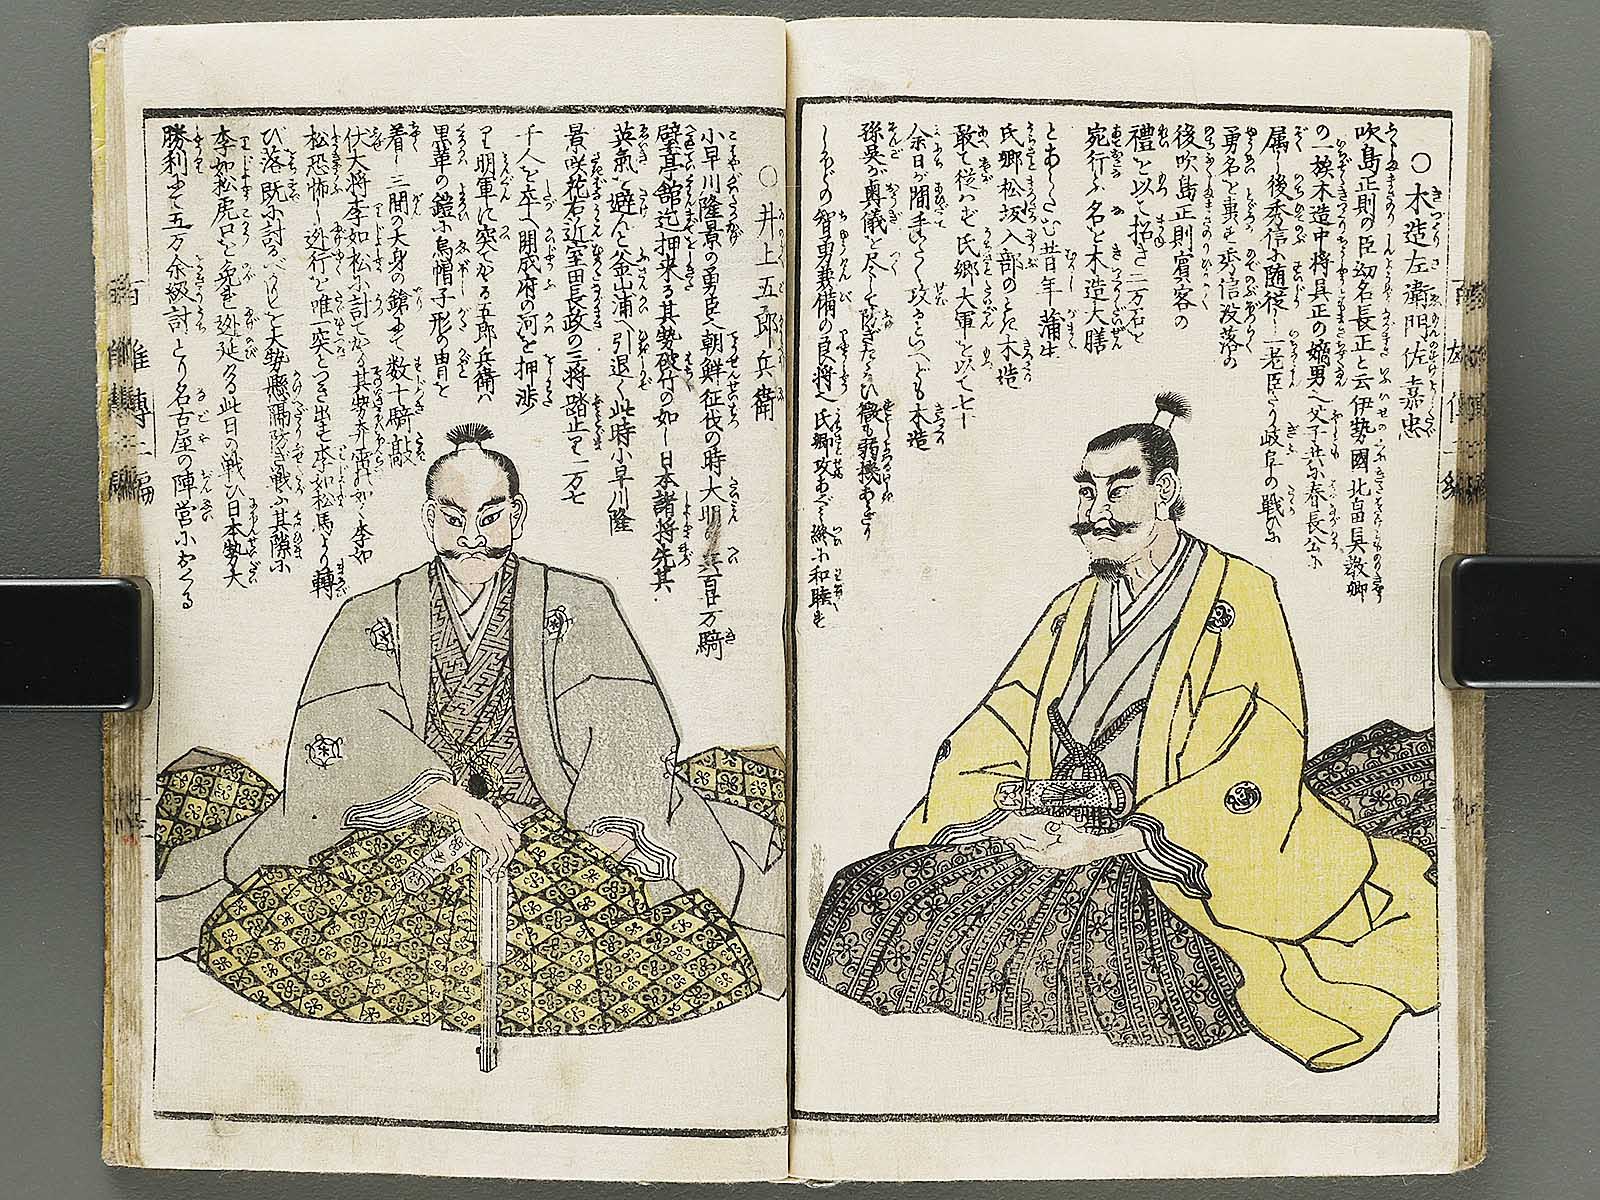 ○木造左衛門佐嘉忠
吹島正則の臣初名長正と云伊勢國北畠具教卿
の一族木造中将具正の嫡男へ父子共に春長公に
属し後秀信に随従し一老臣たり岐阜の戦ひに
勇名を
秀信没落の
後吹島正則賓客の
禮を以て招き二万石を
宛行ふ名を木造大膳
とあらたむ昔年蒲生
氏郷松坂入部のとき木造
敢て従はず氏郷大軍を以て七十
余日が間手いたく攻るといへども木造
孫呉が奥儀を尽して防ぎたゝかひ
しほどの智勇兼備の良将へ氏郷攻あぐみ終に和睦す
○井上五郎兵衛
小早川隆景の勇臣へ朝鮮征伐の時大明の兵百万騎
碧蹄館迄押来る其勢破竹の如し日本諸将先其
英氣を避んと釜山浦へ引退く此時小早川隆
景咲花右近室田長政の三将踏止り一万七
千人を卒へ開成府の河を押渉
り明軍に突てかゝる五郎兵衛ハ
黒革の鎧に烏帽子形の冑を
着し三間の大身の鎗にて数十騎
伏大将李如松に討てかゝる其勢
松恐怖し逃行を唯一突とつき出せ李如松馬より轉
び落既に討るべかりしを大勢懸隔防ぎ戦ふ其隙に
李如松虎口を免れ逃延ける此日の戦ひ日本勢大
勝利にて五万余級討とり名古屋の陣営におくる